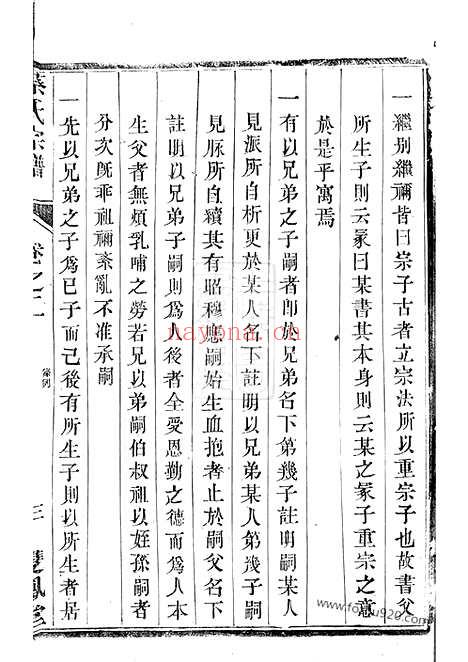 一繼別繼禰皆曰宗子古者立宗法所以重宗子也故書父
所生子則云冢曰某書其本身則云某之冢子重宗之意
於是乎寓焉
一有以兄弟之子嗣者即於兄弟名下第幾子註明嗣某人
見派所自析更於某人名下註明以兄弟某人第幾子嗣
見脉所自續其有昭穆應嗣始生血抱者止於嗣父名下
註明以兄弟子嗣則為人後者全受恩勤之德而為人本
生父者無煩乳哺之勞若兄以弟嗣伯叔祖以姪孫嗣者
分次旣乖祖禰紊亂不准承嗣
一先以兄弟之子為已子而己後有所生子則以所生者居
氏宗譜
卷之二
三
雙鳳堂
nayona.cn